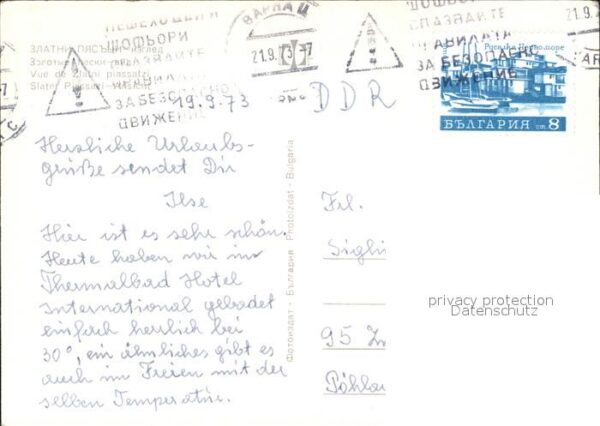 ПЕШЕХОДЦИ
ШОФЬОРИ
СПАЗВАЙТЕ
ПРАВИЛАТА
ЗА БЕЗОПАСНО
ДВИЖЕНИЕ
ВАРНА Ц
21.9.73-7
ШОФЬОРИ
СПАЗВАЙТЕ
ПРАВИЛАТА
ЗА БЕЗОПАСНО
ДВИЖЕНИЕ
21.9.
ЗЛАТНИ ПЯСЪЦИ
Золотые пески
Vue de Zlatni piassatzi
Slatni Piassatzi
БЪЛГАРИЯ ст 8
19.9.73
DDR
Herzliche Urlaubs-
grüße sendet Dir
Ilse
Hier ist es sehr schön.
Heute haben wir im
Thermalbad Hotel
International gebadet
einfach herrlich bei
30°, ein ähnliches gibt es
auch im Freien mit der
selben Temperatur.
Фотоиздат - България Photoizdat - Bulgaria
Frl.
Sigli
95 Zw
Pöhlau
privacy protection
Datenschutz